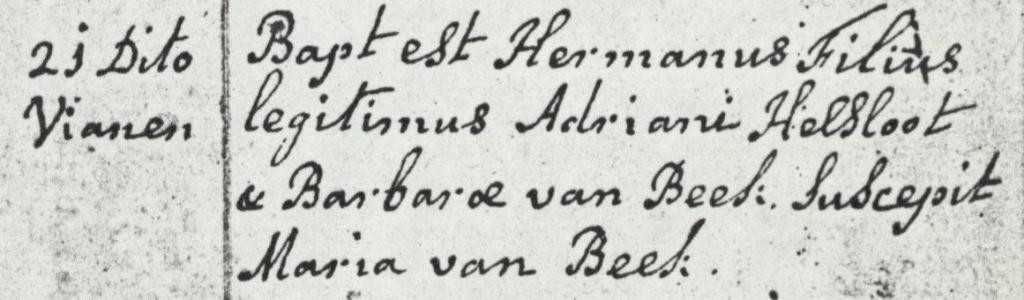 21 Dito
Vianen
Bapt est Hermanus Filius
legitimus Adriani Helsloot
& Barbaræ van Beek. Suscepit
Maria van Beek.